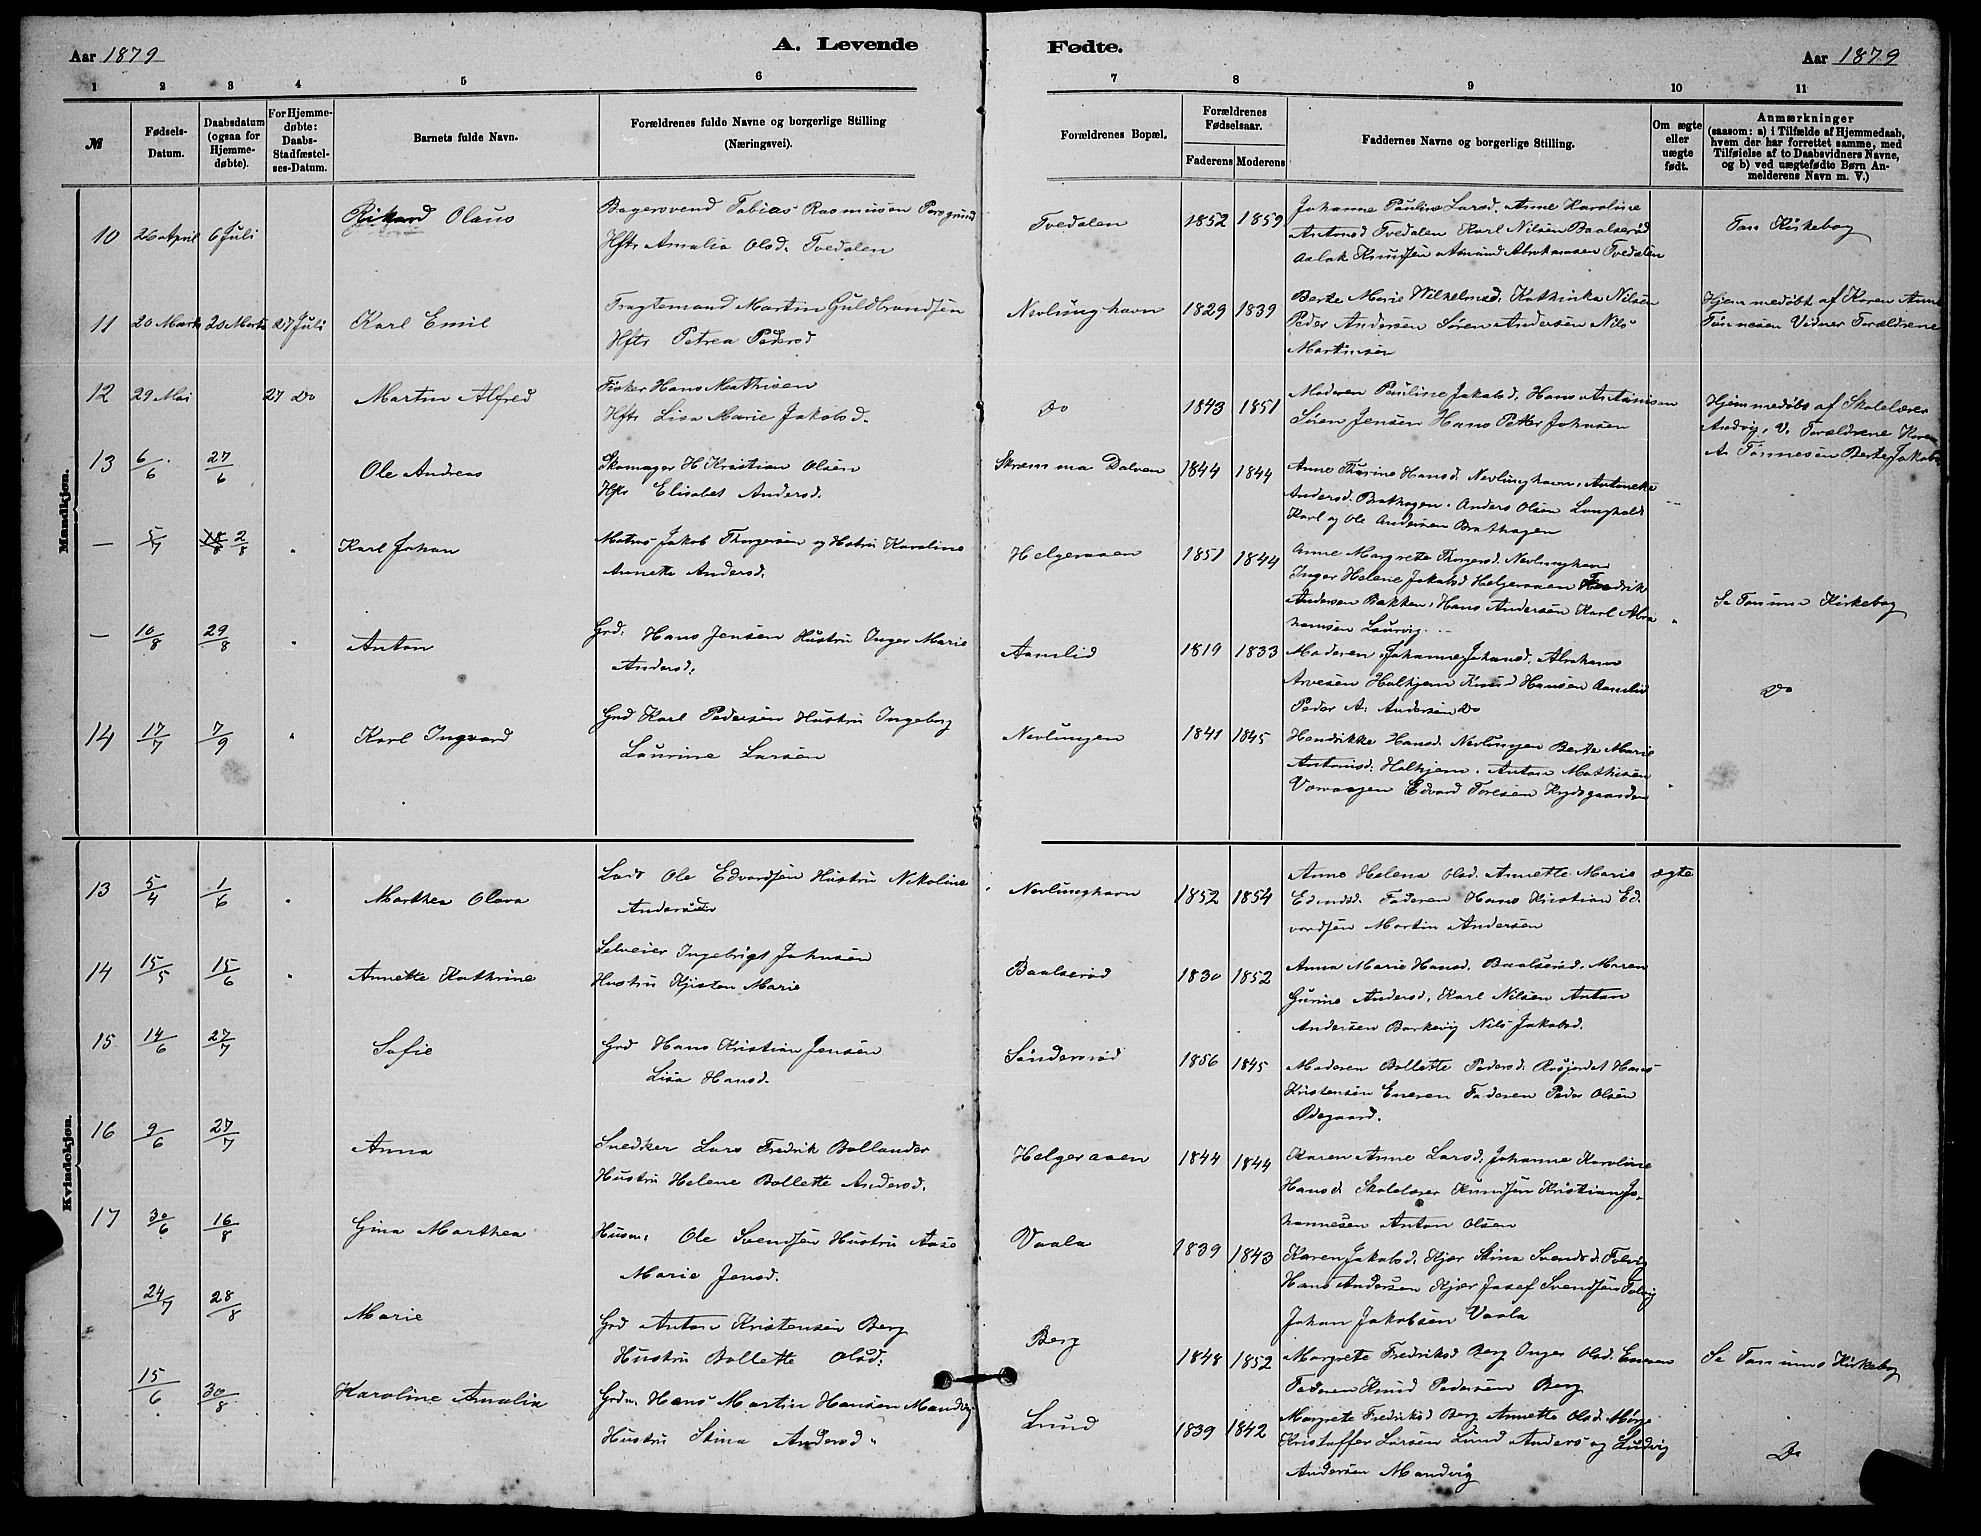 Aar 1879
A. Levende
Fødte.
Aar 1879
1 2 3 4 5 6 7 8 9 10 11
№
Fødsels-Datum.
Daabsdatum (ogsaa for Hjemmedøbte).
For Hjemmedøbte: Daabs-Stadfæstelses-Datum.
Barnets fulde Navn.
Forældrenes fulde Navne og borgerlige Stilling (Næringsvei).
Forældrenes Bopæl.
Forældrenes Fødselsaar.
Faderens Moderens
Faddernes Navne og borgerlige Stilling.
Om ægte eller uægte født.
Anmærkninger
(saasom: a) i Tilfælde af Hjemmedaab, hvem der har forrettet samme, med Tilføielse af to Daabsvidners Navne, og b) ved uægtefødte Børn Anmelderens Navn m. V.)
Mandkjøn.
10 26 April 6 Juli Rikard Olaus
Bagersvend Tobias Rasmussen Porsgrund
Hftr Amalia Olsd. Tvedalen
Tvedalen 1852 1859
Johanne Pauline Larsd. Anne Karoline
Antonsd Tvedalen Karl Nilsen Baalsrød
Aslak Knudsen Amund Abrahamsen Tvedalen
Kirkebog
11 20 Marts 20 Marts 27 Juli Karl Emil
Fragtemand Martin Guldbrandsen
Hftr Petrea Pedersd
Nevlunghavn 1829 1839
Berte Marie Wilhelmsd. Kathinka Nilsen
Peder Andersen Søren Andersen Nils
Martinsen
Hjemmedøbt af Karen Anne
Tønnesen Vidner Forældrene
12 29 Mai 27 Do Martin Alfred
Fisker Hans Mathisen
Hftr Lisa Marie Jakobsd.
Do 1843 1851
Moderen Pauline Jakobsd. Hans Antonisen
Søren Jensen Hans Petter Johnsen
Hjemmedøbt af Skolelærer
Andvig, V. Forældrene Karen
A. Tønnesen Berte Jakobs
13 6/6 27/6 Ole Andreas
Skomager H Kristian Olsen
Hftr Elisabet Andersd.
Dalven 1844 1844
Anne Thurine Hansd. Nevlunghavn, Antonette
Andersd. Brathagen. Anders Olsen Langholt
Karl og Ole Andersen Brathagen
— 5/7 2/8 " Karl Johan
Matros Jakob Thorgersen og Hstru Karoline
Annette Andersd.
Helgeraaen 1851 1844
Anne Margrete Thorgersd. Nevlunghavn
Inger Helene Jakobsd Helgeraaen Fredrik
Andersen Bakken, Hans Andersen Karl Abra
hamsen Laurvig.
Se Tanum Kirkebog
— 10/8 29/8 " Anton
Grd. Hans Jensen Hustru Inger Marie
Andersd.
Aamlid 1819 1833
Moderen, Johanne Johansd. Abraham
Arvesen Holhjem Knud Hansen Aamlid
Peder A. Andersen Do
Do
14 17/7 7/9 " Karl Ingvard
Grd Karl Pedersen Hustru Ingeborg
Laurine Larsen
Nevlungen 1841 1845
Hendrikke Hansd. Nevlungen Berte Marie
Antonisd. Holhjem. Anton Mathisen
Edvard Toresen
Kvindekjøn.
13 5/4 1/6 " Marthea Olava
Lods Ole Edvardsen Hustru Nikoline
Andersdtr
Nevlunghavn 1852 1854
Anne Helena Olsd. Annette Marie
Edvardsd. Faderen Hans Kristian Ed.
vardsen Martin Andersen
ægte
14 15/5 15/6 " Annette Kathrine
Selveier Ingebrigt Johnsen
Hustru Kjisten Marie
Baalsrød 1830 1852
Anna Marie Hansd. Baalsrød. Maren
Gurine Andersd. Karl Nilsen Anton
Andersen Barkevig Nils Jakobsd.
15 14/6 27/7 Sofie
Grd Hans Kristian Jensen
Lisa Hansd.
Søndersrød 1856 1845
Moderen Bollette Pedersd. Hans
Kristensen Eneren Faderen Peder Olsen
Ødegaard.
16 9/6 27/7 Anna
Snedker Lars Fredrik Bollander
Hustru Helene Bollette Andersd.
Helgeraaen 1844 1844
Karen Anne Larsd. Johanne Karoline
Hansd. Skolelærer Knudsen Kristian Jo.
hannesen Anton Olsen
17 30/6 16/8 Gina Marthea
Husm. Ole Svendsen Hustru Aase
Marie Jensd.
Vaala 1839 1843
Karen Jakobsd. Kjær Stina Svendsd.
Hans Andersen Kjær Josef Svendsen
Johan Jakobsen Vaala
24/7 28/8 Marie
Grd Anton Kristensen Berg
Hustru Bollette Olsd.
Berg 1848 1852
Margrete Fredriksd Berg Inger Olsd. Eneren
Faderen Knud Pedersen Berg
Se Tanums Kirkebog
15/6 30/8 Karoline Amalia
Grdm. Hans Martin Hansen Mandvig
Hustru Stina Andersd.
Lund 1839 1842
Margrete Fredriksd Berg. Annette Olsd.
Kristoffer Larsen Lund Anders og Ludvig
Andersen Mandvig
Do